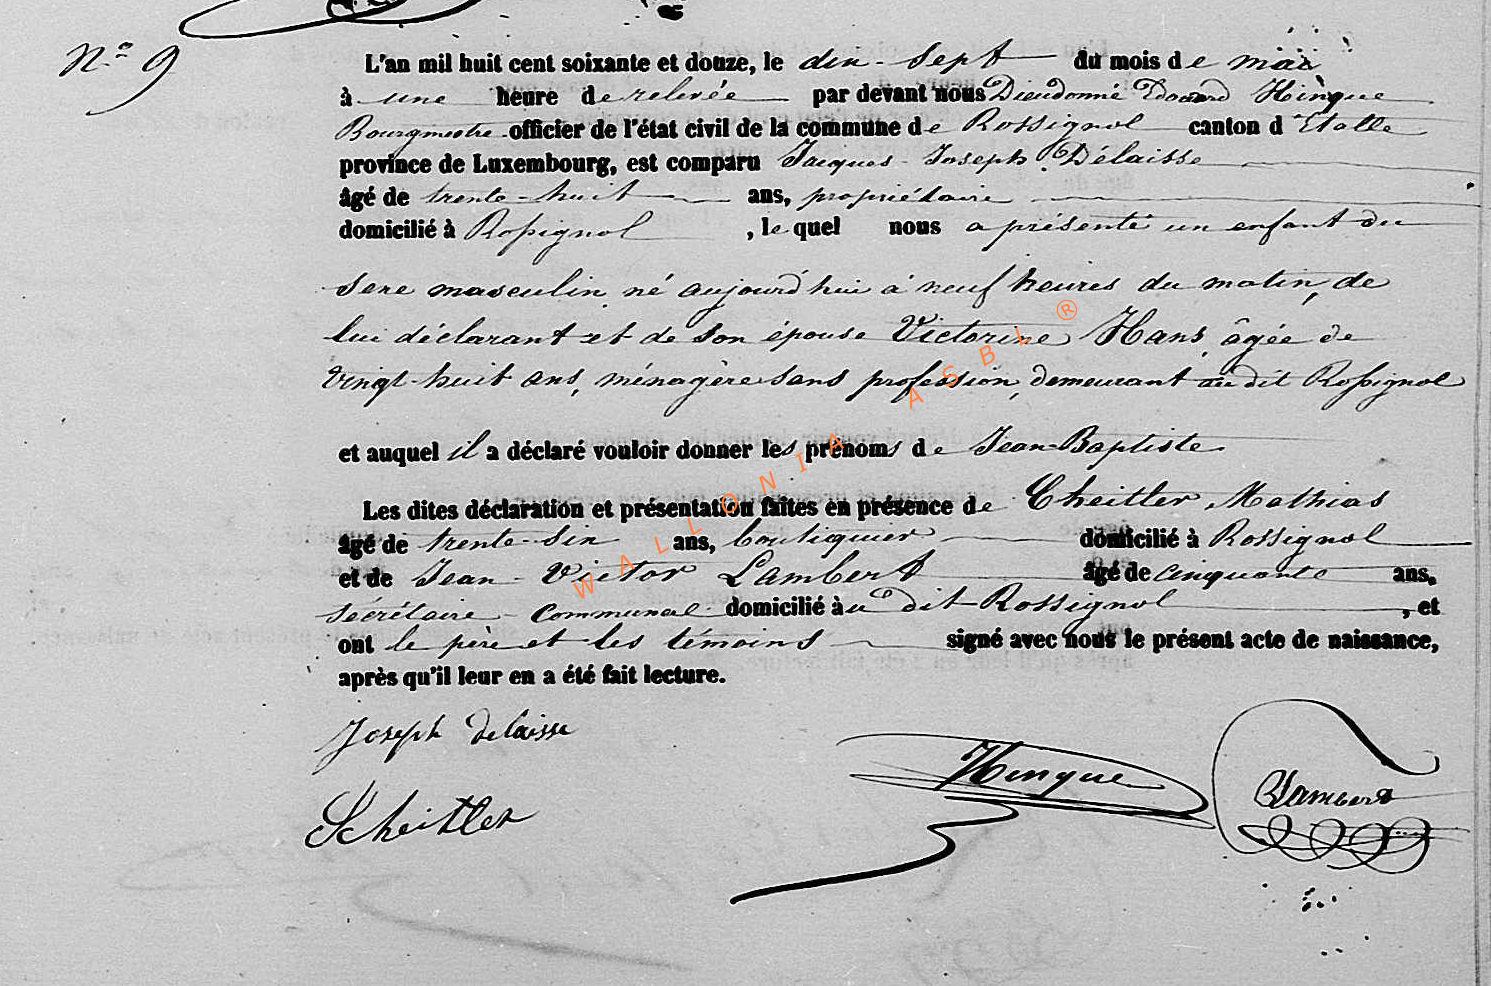 N.º 9
L'an mil huit cent soixante et douze, le dix-sept du mois de mai
à une heure de relevée par devant nous Dieudonné Edouard Hinque
Bourgmestre officier de l'état civil de la commune de Rossignol canton d'Etalle
province de Luxembourg, est comparu Jacques-Joseph Délaisse
âgé de trente-huit ans, propriétaire
domicilié à Rossignol, lequel nous a présenté un enfant du
sexe masculin, né aujourd'hui à neuf heures du matin, de
lui déclarant et de son épouse Victorine Hans, âgée de
vingt-huit ans, ménagère sans profession, demeurant au dit Rossignol
et auquel il a déclaré vouloir donner les prénoms de Jean-Baptiste
Les dites déclaration et présentation faites en présence de Cheitler, Mathias
âgé de trente-six ans, boutiquier domicilié à Rossignol
et de Jean-Victor Lambert âgé de cinquante ans,
sécrétaire communal domicilié au dit Rossignol, et
ont le père et les témoins signé avec nous le présent acte de naissance,
après qu'il leur en a été fait lecture.
Joseph delaisse
Hinque
Lambert
Scheitler
WALLONIA ASBL ®